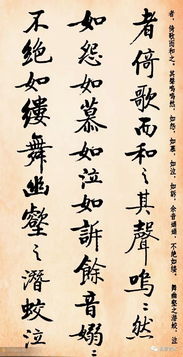 者，倚歌而和之。其聲嗚嗚然，如怨，如慕，如泣，如訴，余音嫋嫋，不絕如縷，舞幽壑之潛蛟，泣
者倚歌而和之其聲嗚々然
如怨如慕如泣如訴餘音嫋々
不絕如縷舞幽壑之潛蛟泣